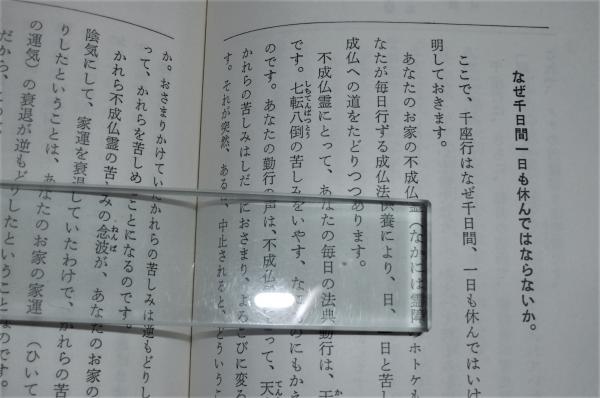 なぜ千日間一日も休んではならないか。
ここで、千座行はなぜ千日間、一日も休んではいけ
明しておきます。
あなたのお家の不成仏霊(なかには霊障のホトケも
なたが毎日行ずる成仏法供養により、日、一日と苦し
成仏への道をたどりつつあります。
不成仏霊にとって、あなたの毎日の法典勤行は、天
です。七転八倒の苦しみをいやす、なにものにもかえ
のです。あなたの勤行の声は、不成仏霊にとって、天
かれらの苦しみはしだいにおさまり、よろこびに変る
す。それが突然、ある、中止されると、どういうこ
か。おさまりかけていたかれらの苦しみは逆もどりし
って、かれらを苦しめることになるのです。
かれら不成仏霊の苦しみの念波が、あなたのお家の
陰気にして、家運を衰退していたわけで、かれらの苦
りしたということは、あなたのお家の家運(ひいて
の運気)の衰退が逆もどりしたということなのです。
だから、